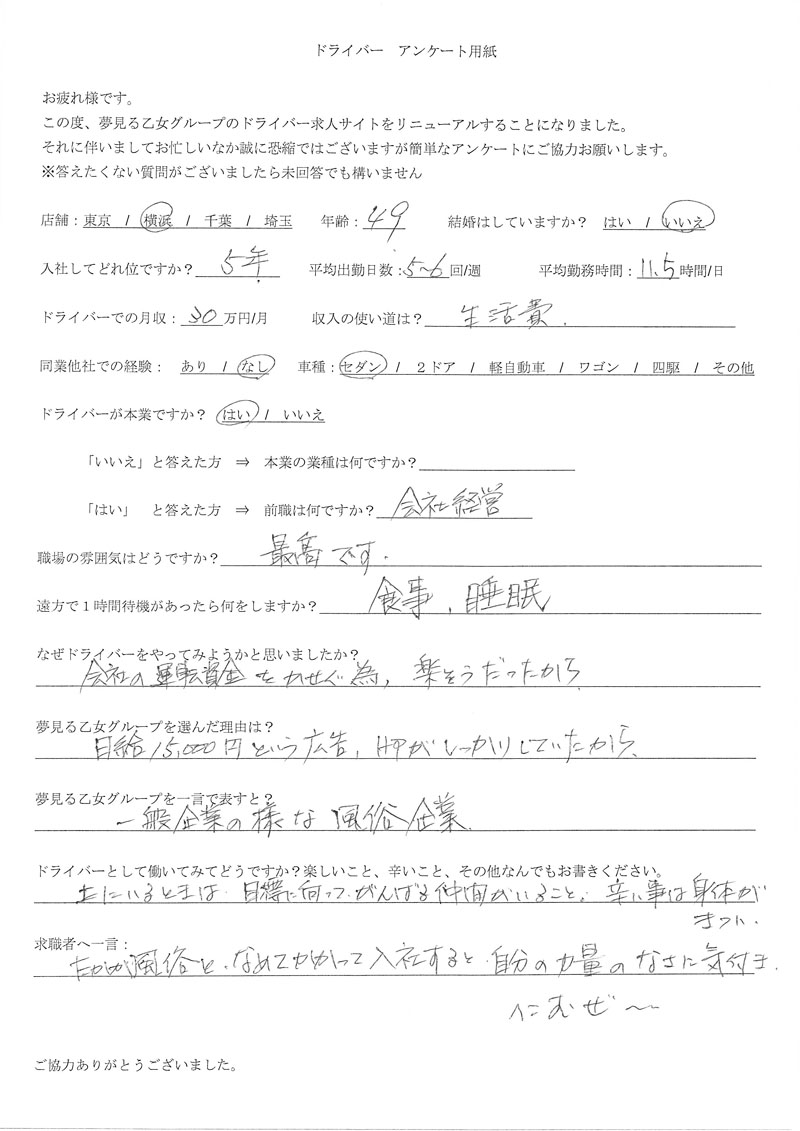 ドライバー　アンケート用紙
お疲れ様です。
この度、夢見る乙女グループのドライバー求人サイトをリニューアルすることになりました。
それに伴いましてお忙しいなか誠に恐縮ではございますが簡単なアンケートにご協力お願いします。
※答えたくない質問がございましたら未回答でも構いません
店舗：東京　/　横浜　/　千葉　/　埼玉　　年齢：49　　結婚はしていますか？　はい　/　いいえ
入社してどれ位ですか？　5年　　平均出勤日数：5～6回/週　　平均勤務時間：11.5時間/日
ドライバーでの月収：30万円/月　　収入の使い道は？　生活費.
同業他社での経験：　あり　/　なし　　車種：セダン　/　２ドア　/　軽自動車　/　ワゴン　/　四駆　/　その他
ドライバーが本業ですか？　はい　/　いいえ
「いいえ」と答えた方　⇒　本業の業種は何ですか？
「はい」　と答えた方　⇒　前職は何ですか？　会社経営
職場の雰囲気はどうですか？　最高です.
遠方で１時間待機があったら何をしますか？　食事、睡眠
なぜドライバーをやってみようかと思いましたか？
会社の運転資金をかせぐ為、楽そうだったから
夢見る乙女グループを選んだ理由は？
日給15,000円という広告、HPがしっかりしていたから、
夢見る乙女グループを一言で表すと？
一般企業の様な風俗企業.
ドライバーとして働いてみてどうですか？楽しいこと、辛いこと、その他なんでもお書きください。
にいるときは 目標に向って、がんばる仲間がいること、辛い事は身体が
きつい.
求職者へ一言：
たかが風俗と、なめてかかって入社すると 自分の力量のなさに気付き、
へこむぜ～
ご協力ありがとうございました。